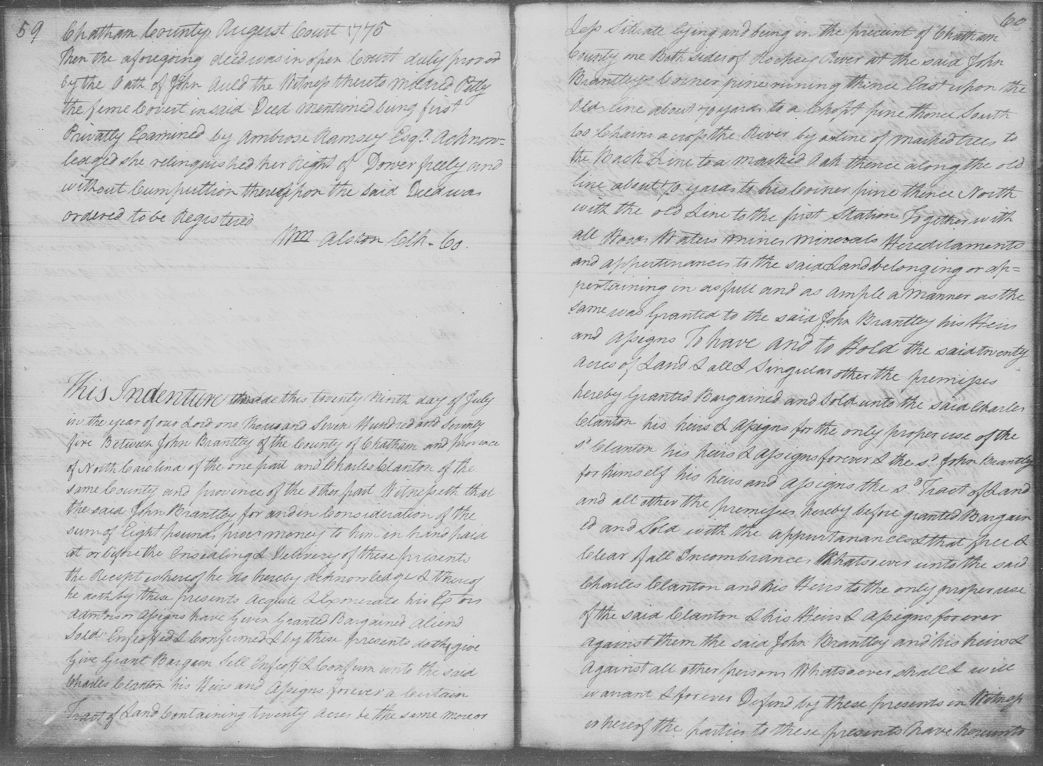 59
Chatham County August Court 1775
Then the aforegoing deed was in open Court duly proved
by the Oath of John Auld the Witness thereto Mildred Petty
the feme Covert in said Deed mentioned being first
Privatly Examined by Ambrose Ramsey Esqr. Acknow-
ledged she relinquished her Right of Dower freely and
without Compultion thereupon the Said Deed was
ordered to be Registred
Wm Alston Clk. Co.
This Indenture made this twenty Ninth day of July
in the year of our Lord one Thousand Seven Hundred and Seventy
five Between John Brantley of the County of Chatham and province
of North Carolina of the one part and Charles Clanton of the
same County and province of the other part Witnesseth that
the said John Brantley for and in Consideration of the
sum of Eight pounds money to him in hand paid
at or before the Ensealing & Delivery of these presents
the Receipt whereof he do hereby Acknowledge & thereof
he doth by these presents Acquite & Exonerate his Exors
admors or Assigns have Given Granted Bargained Aliend
Sold Enfeoffed & Confirmed & by these presents doth give
Give Grant Bargain Sell Enfeoff & Confirm unto the said
Charles Clanton his Heirs and Assigns forever a Certain
Tract of Land Containing twenty acres be the same more or
60
Less Situate lying and being in the precinct of Chatham
County one Both sides of Rockey River at the said John
Brantleys Corner pine runing thence East upon the
old line about 70 yards to a Chopt pine thence South
60 Chains across the River by a line of marked trees to
the Back Line to a marked Oak thence along the old
line about 70 yards to his Corner pine thence North
with the old Line to the first Station Together with
all Waters mines minerals Hereditaments
and appertinances to the said Land belonging or ap=
pertaining in as full and as ample a Manner as the
same was Granted to the said John Brantley his Heirs
and Assigns To have and to Hold the said twenty
acres of Land & all & Singular other the premises
hereby Granted Bargained and Sold unto the said Charles
Clanton his heirs & Assigns for the only proper use of the
sd. Clanton his heirs & Assigns forever & the sd. John Brantley
for himself his heirs and Assigns the sd. Tract of Land
and all other the premises hereby before granted Bargain
ed and Sold with the appurtanances & that free &
Clear of all Incombrances Whatsoever unto the said
Charles Clanton and his Heirs to the only proper use
of the said Clanton & his Heirs & Assigns forever
against them the said John Brantley and his heirs &
Against all other persons Whatsoever shall & will
warant & forever Defend by these presents in Witness
whereof the parties to these presents have hereunto